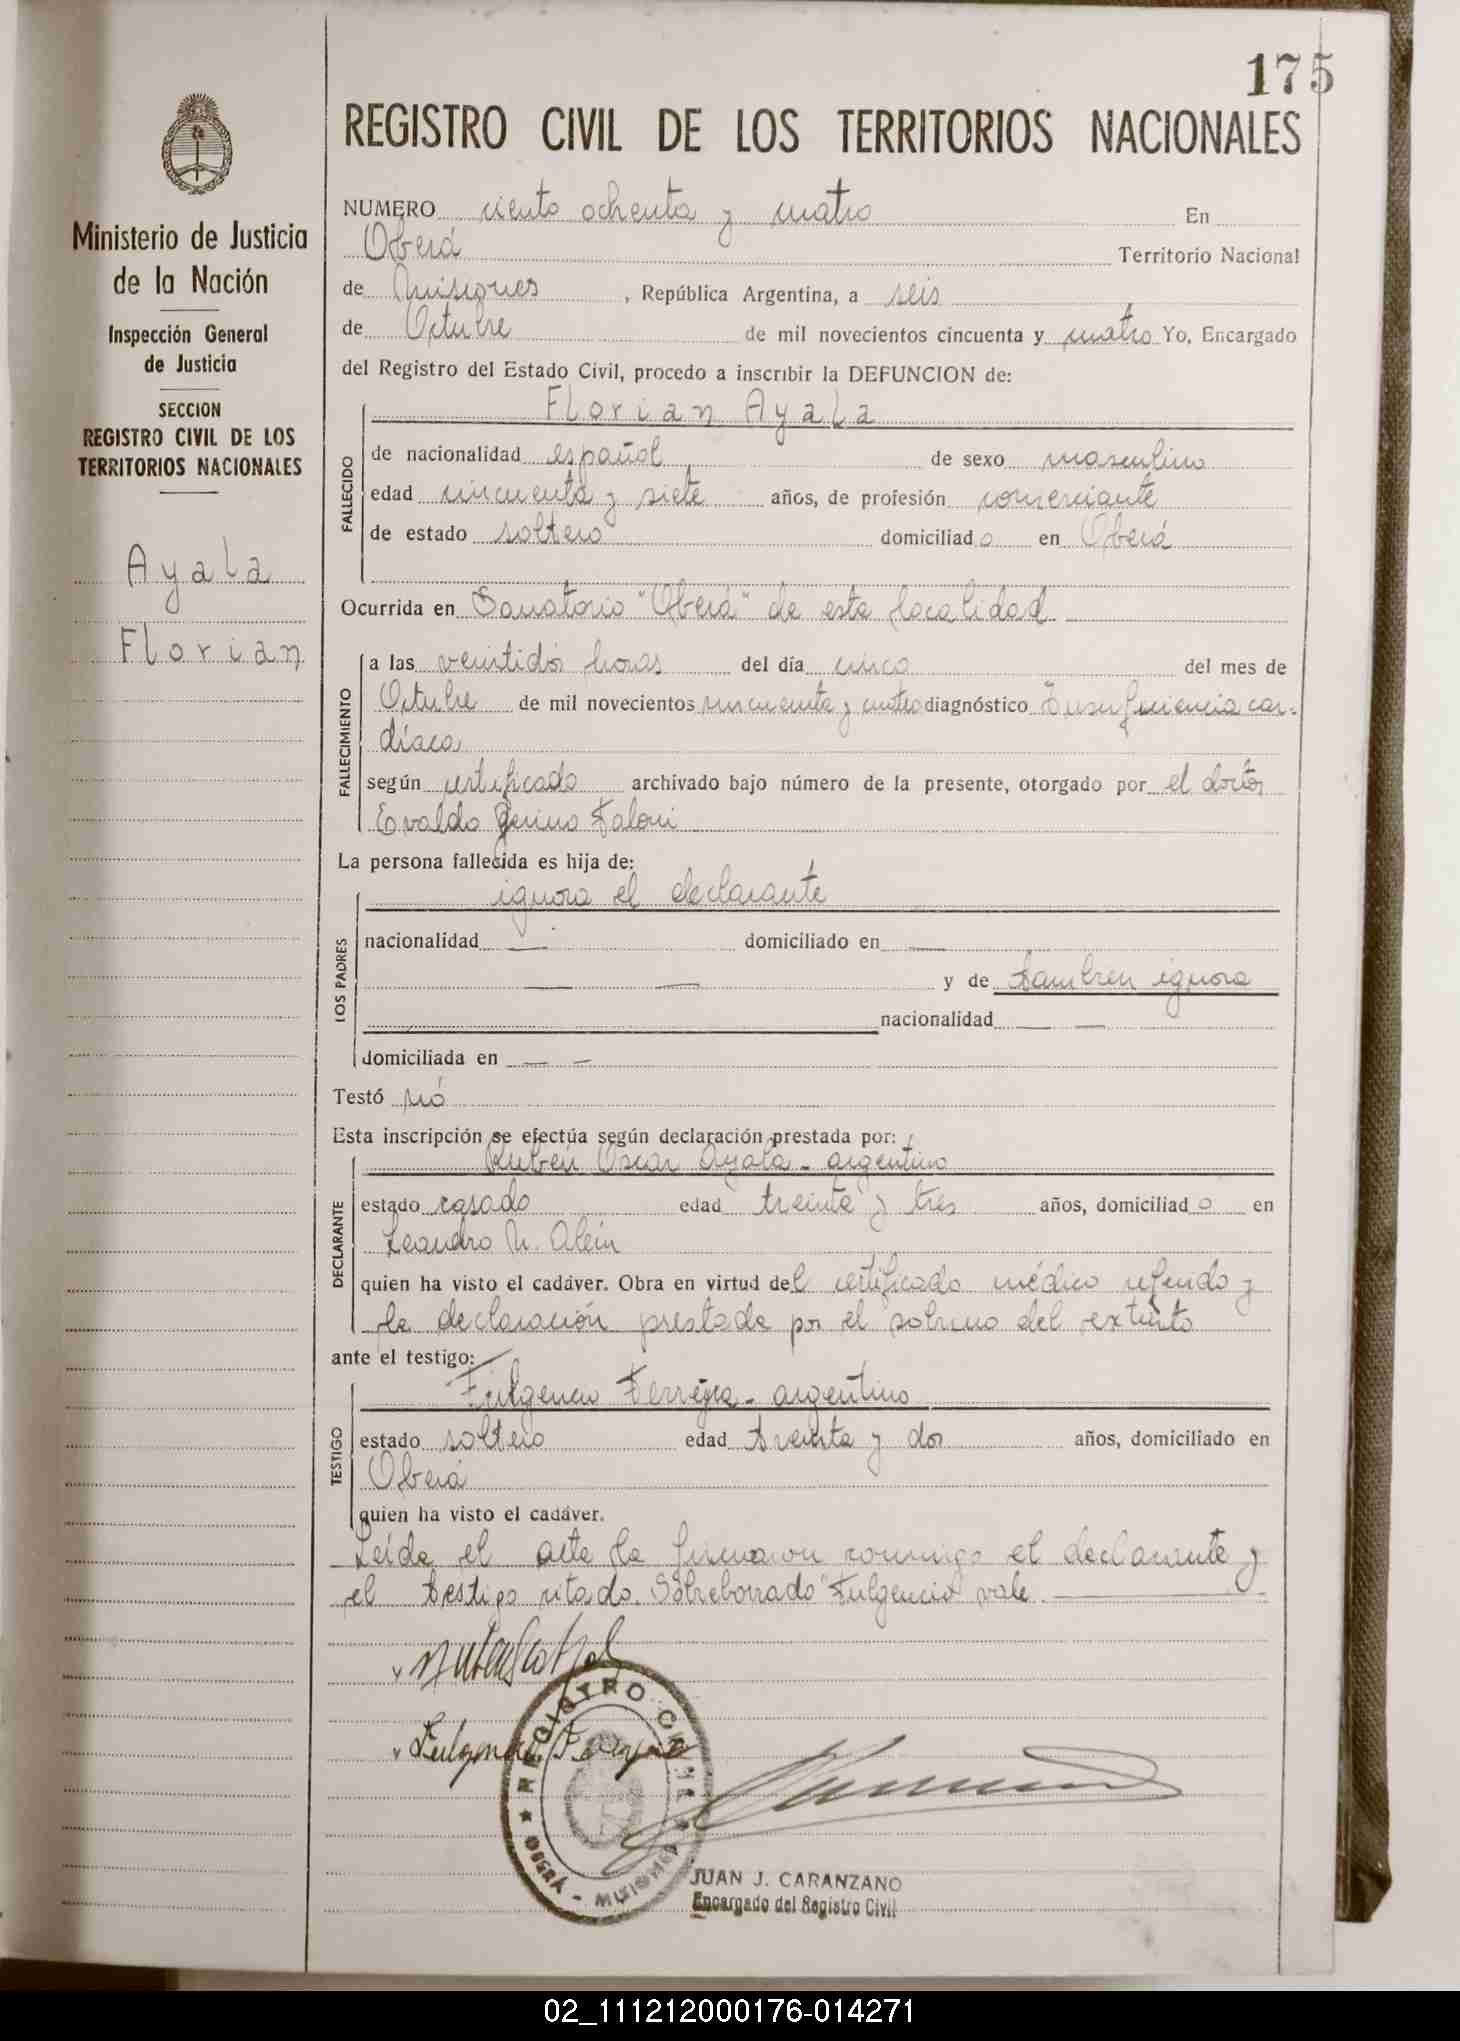 175
REGISTRO CIVIL DE LOS TERRITORIOS NACIONALES
Ministerio de Justicia
de la Nación
Inspección General
de Justicia
SECCION
REGISTRO CIVIL DE LOS
TERRITORIOS NACIONALES
Ayala
Florian
NUMERO ciento ochenta y cuatro En
Oberá Territorio Nacional
de Misiones, República Argentina, a seis
de Octubre de mil novecientos cincuenta y cuatro Yo, Encargado
del Registro del Estado Civil, procedo a inscribir la DEFUNCION de:
Florian Ayala
FALLECIDO
de nacionalidad español de sexo masculino
edad cincuenta y siete años, de profesión comerciante
de estado soltero domiciliado en Oberá
Ocurrida en Sanatorio "Oberá" de esta localidad
FALLECIMIENTO
a las veintidós horas del día cinco del mes de
Octubre de mil novecientos cincuenta y cuatro diagnóstico Insuficiencia car-
díaca
según certificado archivado bajo número de la presente, otorgado por el doctor
Evaldo
La persona fallecida es hija de:
ignora el declarante
LOS PADRES
nacionalidad — domiciliado en —
— — y de tambien ignora
nacionalidad — —
domiciliada en — —
Testó nó
Esta inscripción se efectúa según declaración prestada por:
Rubén Oscar Ayala - argentino
DECLARANTE
estado casado edad treinta y tres años, domiciliado en
Leandro N. Alem
quien ha visto el cadáver. Obra en virtud del certificado médico referido y
la declaración prestada por el sobrino del extinto
ante el testigo:
Fulgencio Ferreyra - argentino
TESTIGO
estado soltero edad treinta y dos años, domiciliado en
Oberá
quien ha visto el cadáver.
Leída el acta la firmaron conmigo el declarante y
el testigo citado. Sobreborrado "Fulgencio" vale
Fulgencio Ferreyra
REGISTRO CIVIL
OBERÁ - MISIONES
JUAN J. CARANZANO
Encargado del Registro Civil
02_111212000176-014271